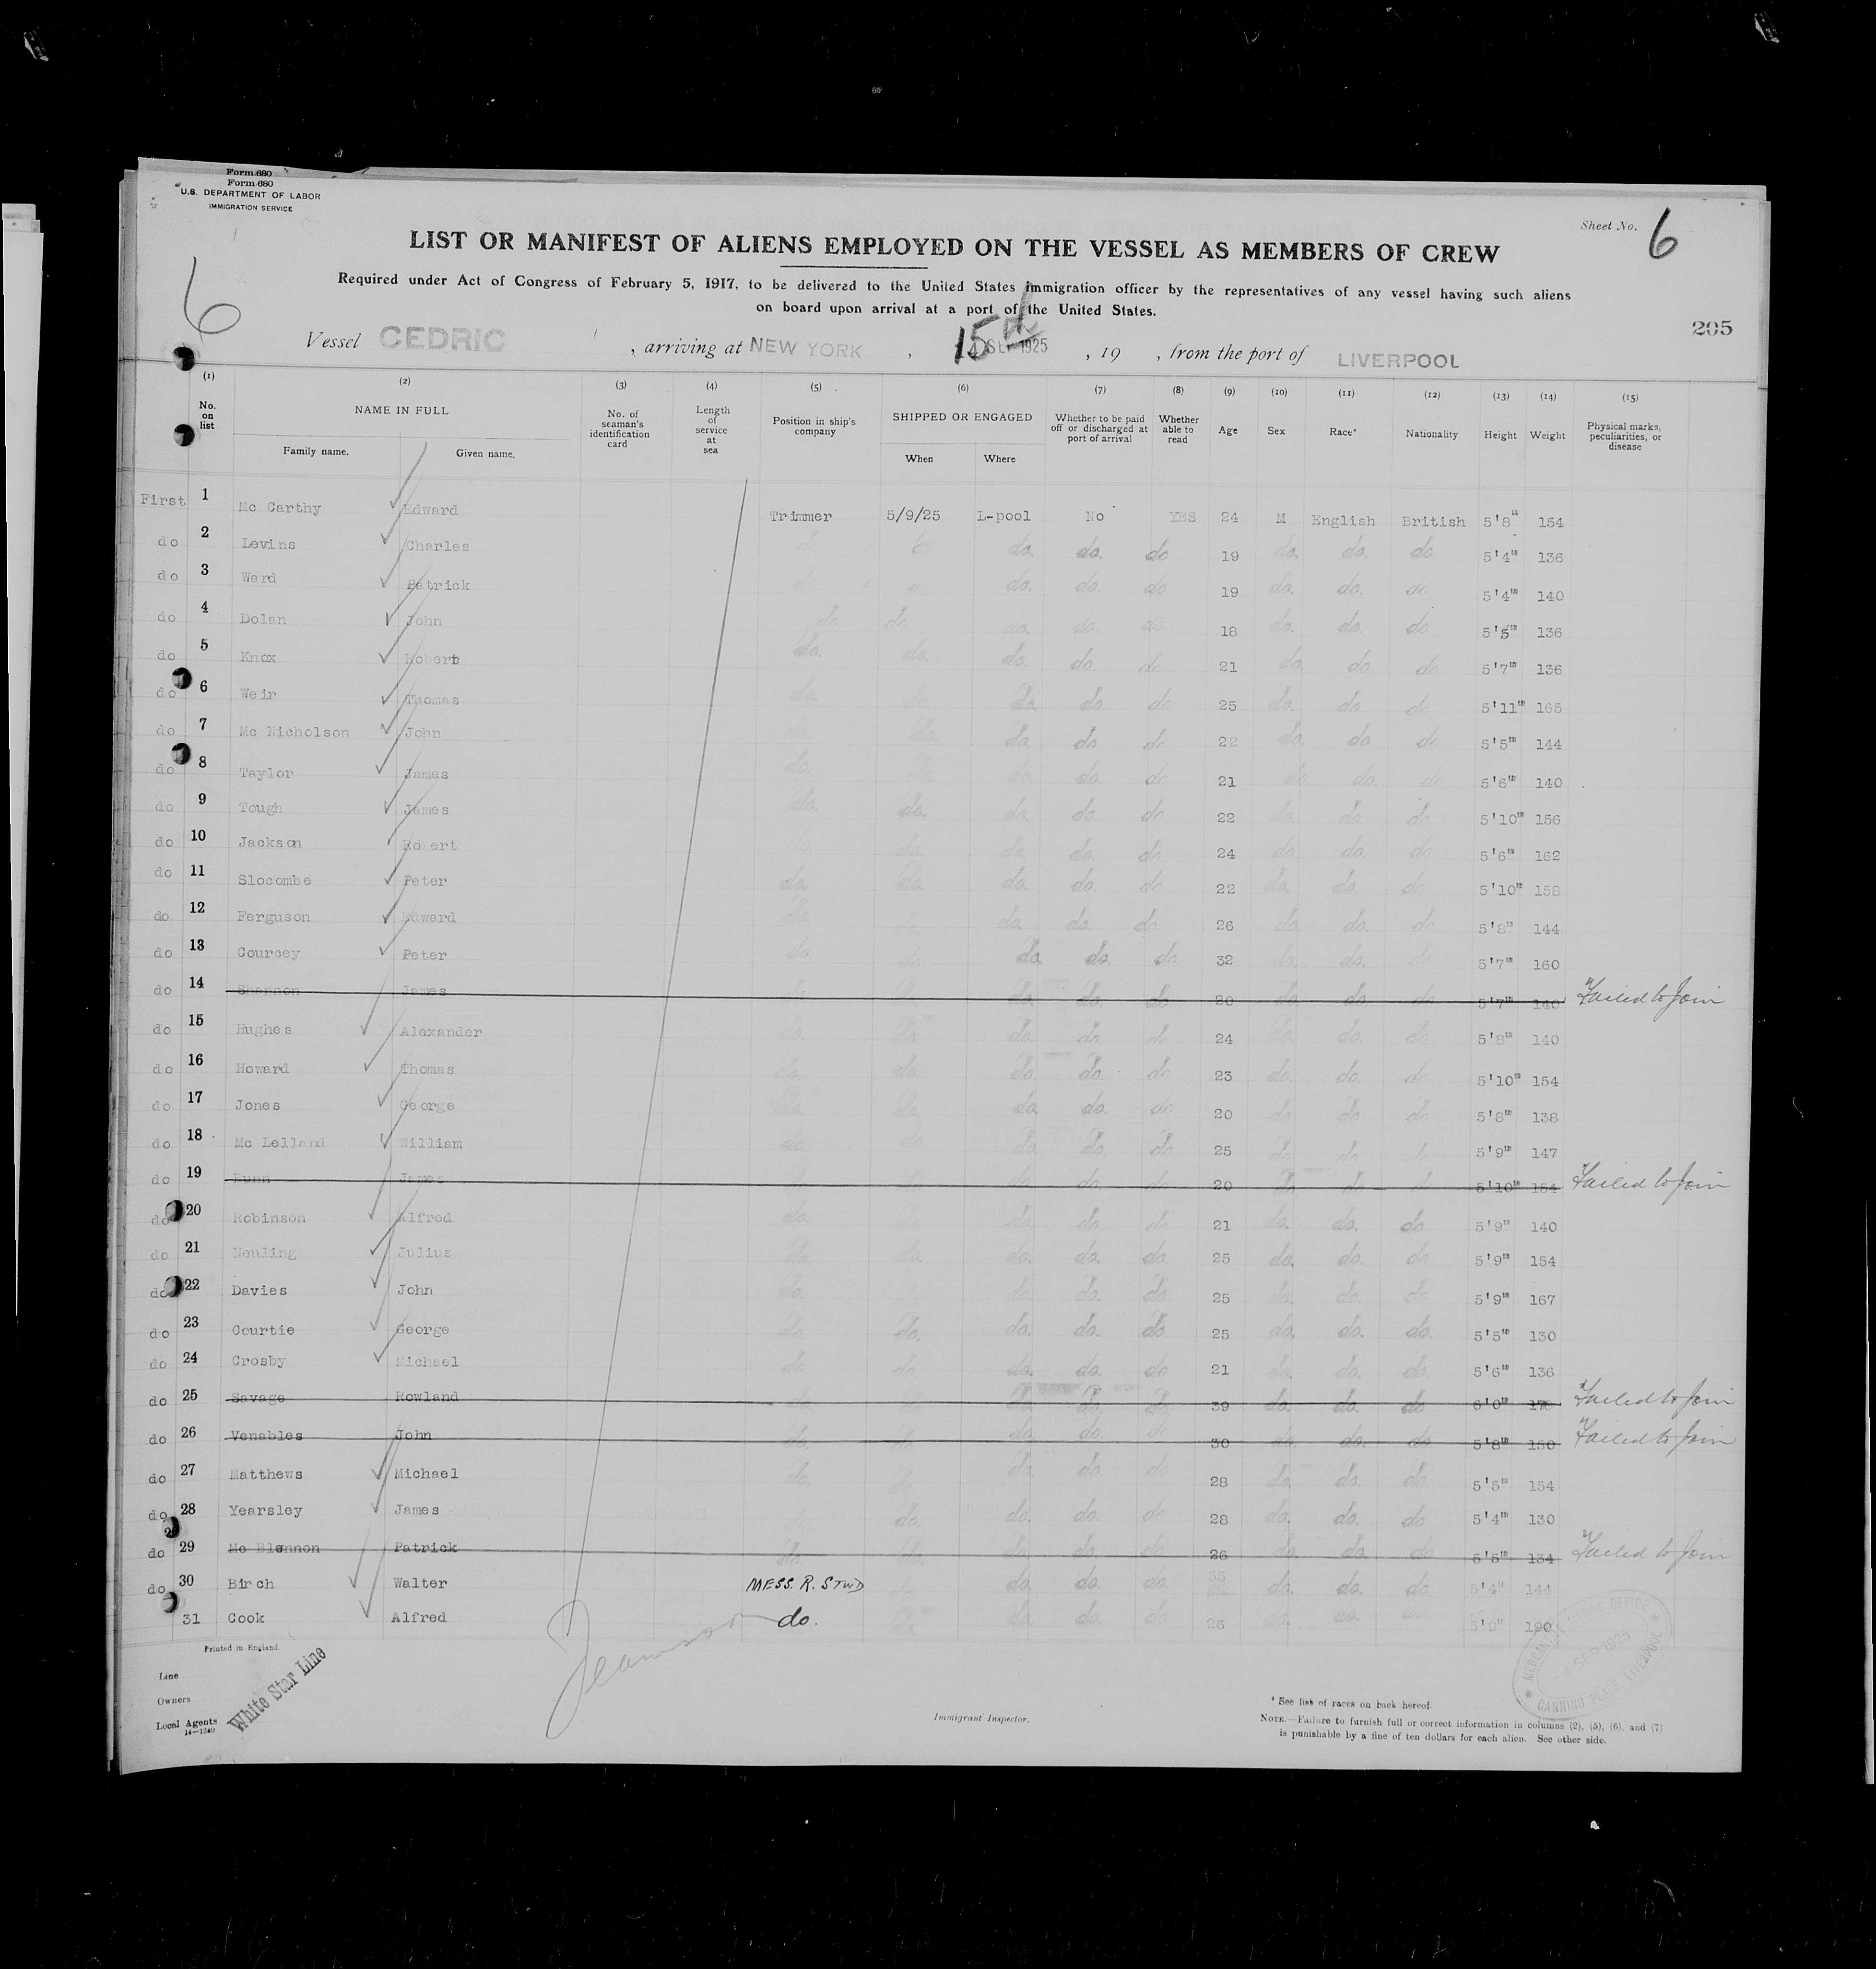 Form 680
Form 680
U.S. DEPARTMENT OF LABOR
IMMIGRATION SERVICE
Sheet No. 6
LIST OR MANIFEST OF ALIENS EMPLOYED ON THE VESSEL AS MEMBERS OF CREW
Required under Act of Congress of February 5, 1917, to be delivered to the United States immigration officer by the representatives of any vessel having such aliens
on board upon arrival at a port of the United States.
6
205
Vessel CEDRIC, arriving at NEW YORK, 15th SEP 1925, 19 , from the port of LIVERPOOL
(1) (2) (3) (4) (5) (6) (7) (8) (9) (10) (11) (12) (13) (14) (15)
No. on list NAME IN FULL No. of seaman's identification card Length of service at sea Position in ship's company SHIPPED OR ENGAGED Whether to be paid off or discharged at port of arrival Whether able to read Age Sex Race* Nationality Height Weight Physical marks, peculiarities, or disease
Family name. Given name. When Where
First 1 Mc Carthy Edward Trimmer 5/9/25 L-pool No YES 24 M English British 5'8" 154
do 2 Levins Charles do. do. do 19 do. do. do. 5'4" 136
do 3 Ward Patrick do. do. do 19 do. do. do 5'4" 140
do 4 Dolan John do. do. do. do. do. 18 do. do. do 5'5" 136
do 5 Knox Robert do. do. do. do. do 21 do. do. do 5'7" 136
do 6 Weir Thomas do. do. do. do. do 25 do. do. do 5'11" 165
do 7 Mc Nicholson John do. do. do. do. do 22 do. do. do 5'5" 144
do 8 Taylor James do. do. do. do. do 21 do. do. do 5'6" 140
do 9 Tough James do. do. do. do. do 22 do. do. do 5'10" 156
do 10 Jackson Robert do. do. do. do 24 do. do. do 5'6" 162
do 11 Slocombe Peter do. do. do. do. do 22 do. do. do 5'10" 158
do 12 Ferguson Edward do. do. do. do. do 26 do. do. do 5'8" 144
do 13 Courcey Peter do. do. do. do. do 32 do. do. do 5'7" 160
do 14 Shannon James do. do. do. do. do 20 do. do. do 5'7" 140 Failed to Join
do 15 Hughes Alexander do. do. do. do. do 24 do. do. do 5'8" 140
do 16 Howard Thomas do. do. do. do. do 23 do. do. do 5'10" 154
do 17 Jones George do. do. do. do. do 20 do. do. do 5'8" 138
do 18 Mc Lelland William do. do. do. do. do 25 do. do. do 5'9" 147
do 19 Dunn James do. do. do 20 do. do. do 5'10" 154 Failed to Join
do 20 Robinson Alfred do. do. do. do. do 21 do. do. do 5'9" 140
do 21 Neuling Julius do. do. do. do. do 25 do. do. do 5'9" 154
do 22 Davies John do. do. do. do. do 25 do. do. do 5'9" 167
do 23 Courtie George do. do. do. do. do. 25 do. do. do. 5'5" 130
do 24 Crosby Michael do. do. do. do. do 21 do. do. do 5'6" 136
do 25 Savage Rowland do. do. do. do. do 39 do. do. do 6'0" Failed to Join
do 26 Venables John do. do. do. do 30 do. do. do 5'8" 150 Failed to Join
do 27 Matthews Michael do. do. do. do. do 28 do. do. do. 5'5" 154
do 28 Yearsley James do. do. do. do 28 do. do. do 5'4" 130
do 29 Mc Blennon Patrick do. do. do. do. do 26 do. do. do 5'5" 134 Failed to Join
do 30 Birch Walter MESS. R. STWD do. do. do. do. 35 do. do. do. 5'4" 144
31 Cook Alfred do. do. do. do. do. 26 do. do. do 5'9" 190
Printed in England
Line
Owners
Local Agents
14—1240
White Star Line
Immigrant Inspector.
MERCANTILE MARINE OFFICE
4 SEP 1925
CANNING PLACE, LIVERPOOL
* See list of races on back hereof.
NOTE.—Failure to furnish full or correct information in columns (2), (5), (6), and (7)
is punishable by a fine of ten dollars for each alien. See other side.